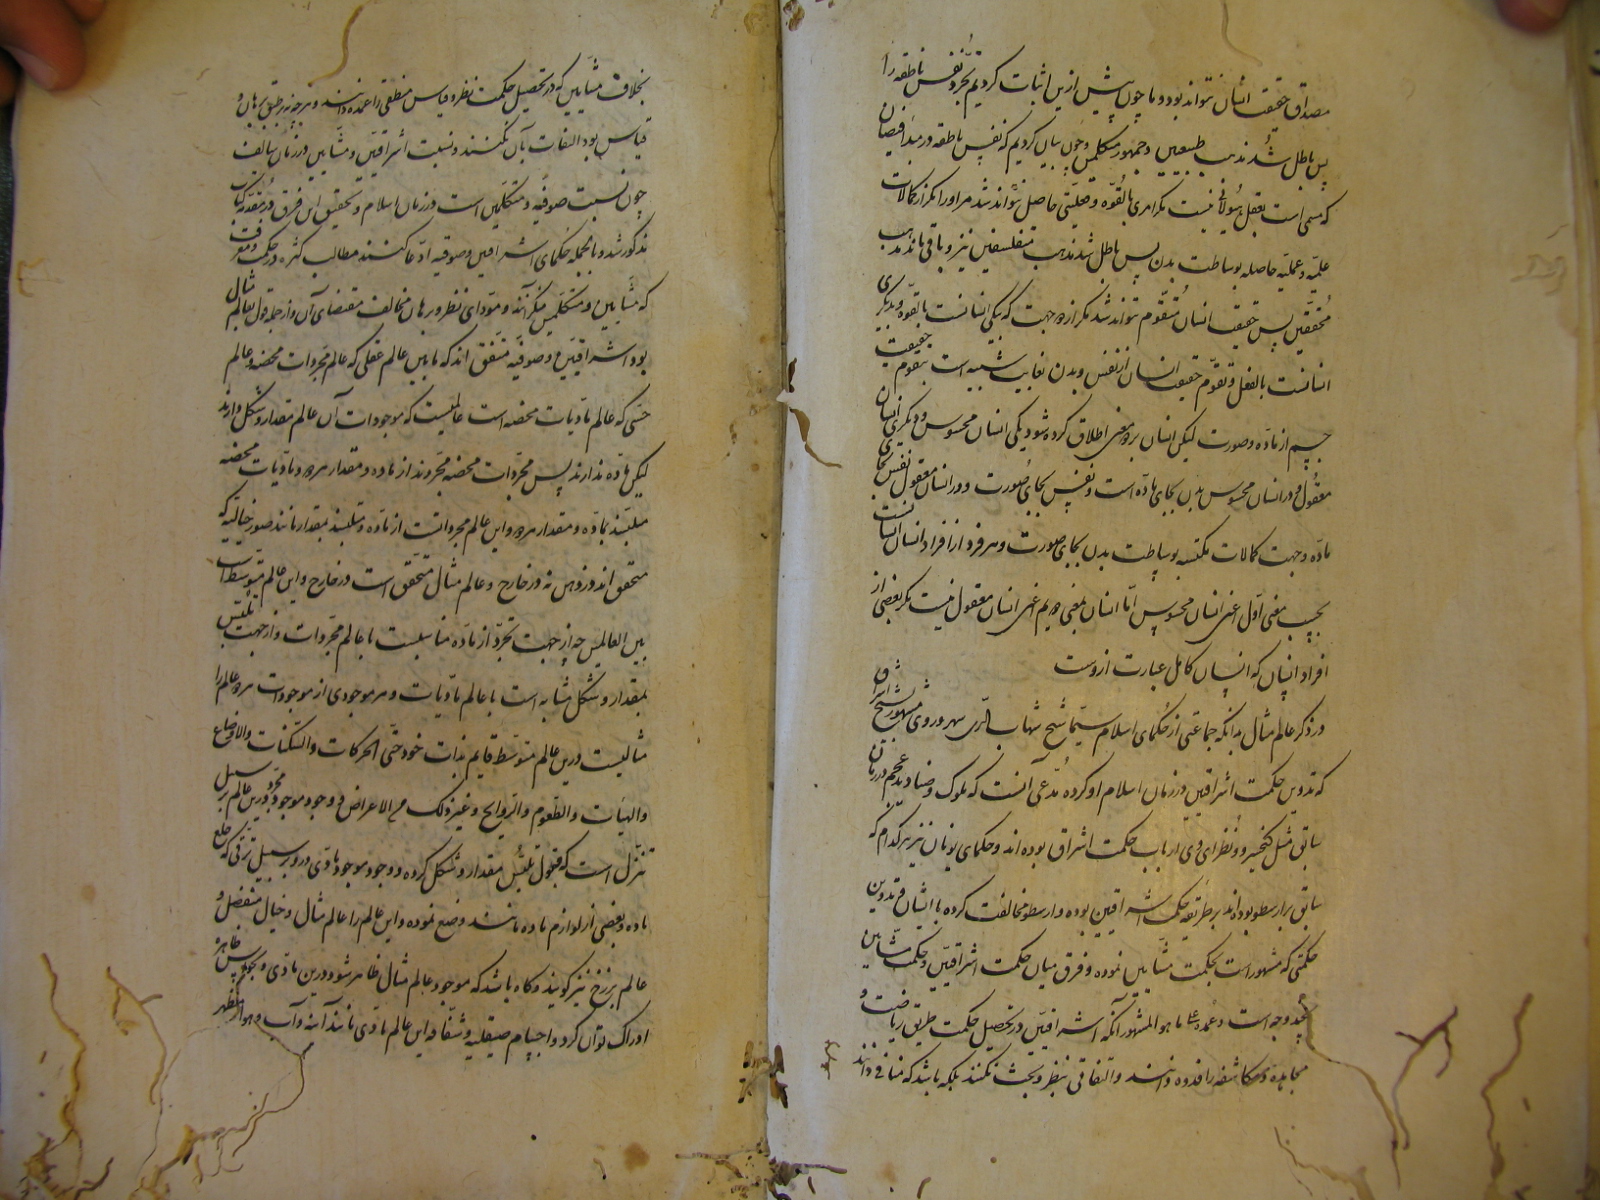 مصداق حقیقت انسان نتواند بود و ما چون پیش ازین اثبات کردیم تجرد نفس ناطقه را
پس باطل شد مذهب طبیعیین و جمهور متکلمین و چون بیان کردیم که نفس ناطقه در مبدأ فیضان
که مسمی است بعقل هیولانی نیست مگر امری بالقوّه و فعلیّتی حاصل نتواند شد مر او را مگر از کمالات
علمیّه و عملیّه حاصله بوساطت بدن پس باطل شد مذهب متفلسفین نیز و باقی ماند مذهب
محققین پس حقیقت انسان متقوّم نتواند شد مگر از دو جهت که بیکی انسانست بالقوّه و بدیگری
انسانست بالفعل و تقوّم حقیقت انسان از نفس و بدن بغایت شبیه است بتقوم حقیقت
جسم از مادّه و صورت لیکن انسان بر دو معنی اطلاق کرده شود یکی انسان محسوس و دیگری انسان
معقول و در انسان محسوس بدن بجای مادّه است و نفس بجای صورت و در انسان معقول نفس بجای
مادّه و جهت کمالات مکتسبه بوساطت بدن بجای صورت و هر فرد از افراد انسان انسانست
بحسب معنی اوّل اعنی انسان محسوس امّا انسان بمعنی دویم اعنی انسان معقول نیست مگر بعضی از
افراد انسان که انسان کامل عبارت ازوست
در ذکر عالم مثال بدانکه جماعتی از حکمای اسلام سیّما شیخ شهاب الدّین سهروردی مشهور بشیخ اشراق
که تدوین حکمت اشراقیین در زمان اسلام او کرده مدّعی آنست که ملوک و صنادید عجم در زمان
سابق مثل کیخسرو و نظرای وی ارباب حکمت اشراق بوده‌اند و حکمای یونان نیز هر کدام که
سابق بر ارسطو بوده‌اند بر طریقه حکمت اشراقیین بوده و ارسطو مخالفت کرده با ایشان و تدوین
حکمتی که مشهور است بحکمت مشّایین نموده و فرق میان حکمت اشراقیین و حکمت مشّایین
بچند وجه است و عمده علی ما هو المشهور آنکه اشراقیین در تحصیل حکمت طریق ریاضت و
مجاهده و مکاشفه را قدوه دانند و التفاتی بنظر و بحث نکنند بلکه باشد که منافی دانند
بخلاف مشّایین که در تحصیل حکمت نظر و قیاس منطقی را عمده دانند و هر چه نه بر طبق برهان و
قیاس بود التفات بآن نکنند و نسبت اشراقیّین و مشّایین در زمان سالف
چون نسبت صوفیّه و متکلّمین است در زمان اسلام و تحقیق این فرق در مقدّمه کتاب
مذکور شد و بالجمله حکمای اشراقیین و صوفیه ادّعا کنند مطالب کثیره در حکمت و معرفت
که مشّایین و متکلّمین منکر آنند و مودّای نظر و برهان مخالف مقتضای آن و از جمله قول بعالم مثال
بود اشراقیّین و صوفیّه متفق‌اند که مابین عالم عقلی که عالم مجردات محضه و عالم
حسّی که عالم مادّیات محضه است عالمیست که موجودات آن عالم مقدار و شکل دارند
لیکن مادّه ندارند پس مجرّدات محضه مجرّدند از ماده و مقدار هر دو و مادّیات محضه
متلبّسند بمادّه و مقدار هر دو و این عالم مجرداتست از مادّه و متلبّسند بمقدار مانند صور خیالیّه که
متحقق‌اند در ذهن نه در خارج و عالم مثال متحقق است در خارج و این عالم متوسّط است
بین العالمین چه از جهت تجرّد از مادّه مناسبست با عالم مجرّدات و از جهت تلبّس
بمقدار و شکل مشابه است با عالم مادّیات و هر موجودی از موجودات هر دو عالم را
مثالیست درین عالم متوسّط قایم بذات خود حتی الحرکات و السّکنات و الاوضاع
والهیٔات والطّعوم والرّوایح و غیر ذلک من الاعراض و وجود موجود مجرّد درین عالم بر سبیل
تنزّل است که قبول تلبّس مقدار و شکل کرده و وجود موجود مادّی درو بر سبیل ترقی که خلع
ماده و بعضی از لوازم ماده مانند وضع نموده و این عالم را عالم مثال و خیال منفصل و
عالم برزخ نیز گویند و گاه باشد که موجود عالم مثال ظاهر شود درین مادّی و بحواس ظاهر
ادراک توان کرد و اجسام صیقلیه و شفّافه این عالم مادّی مانند آینه و آب و هوا مظهر